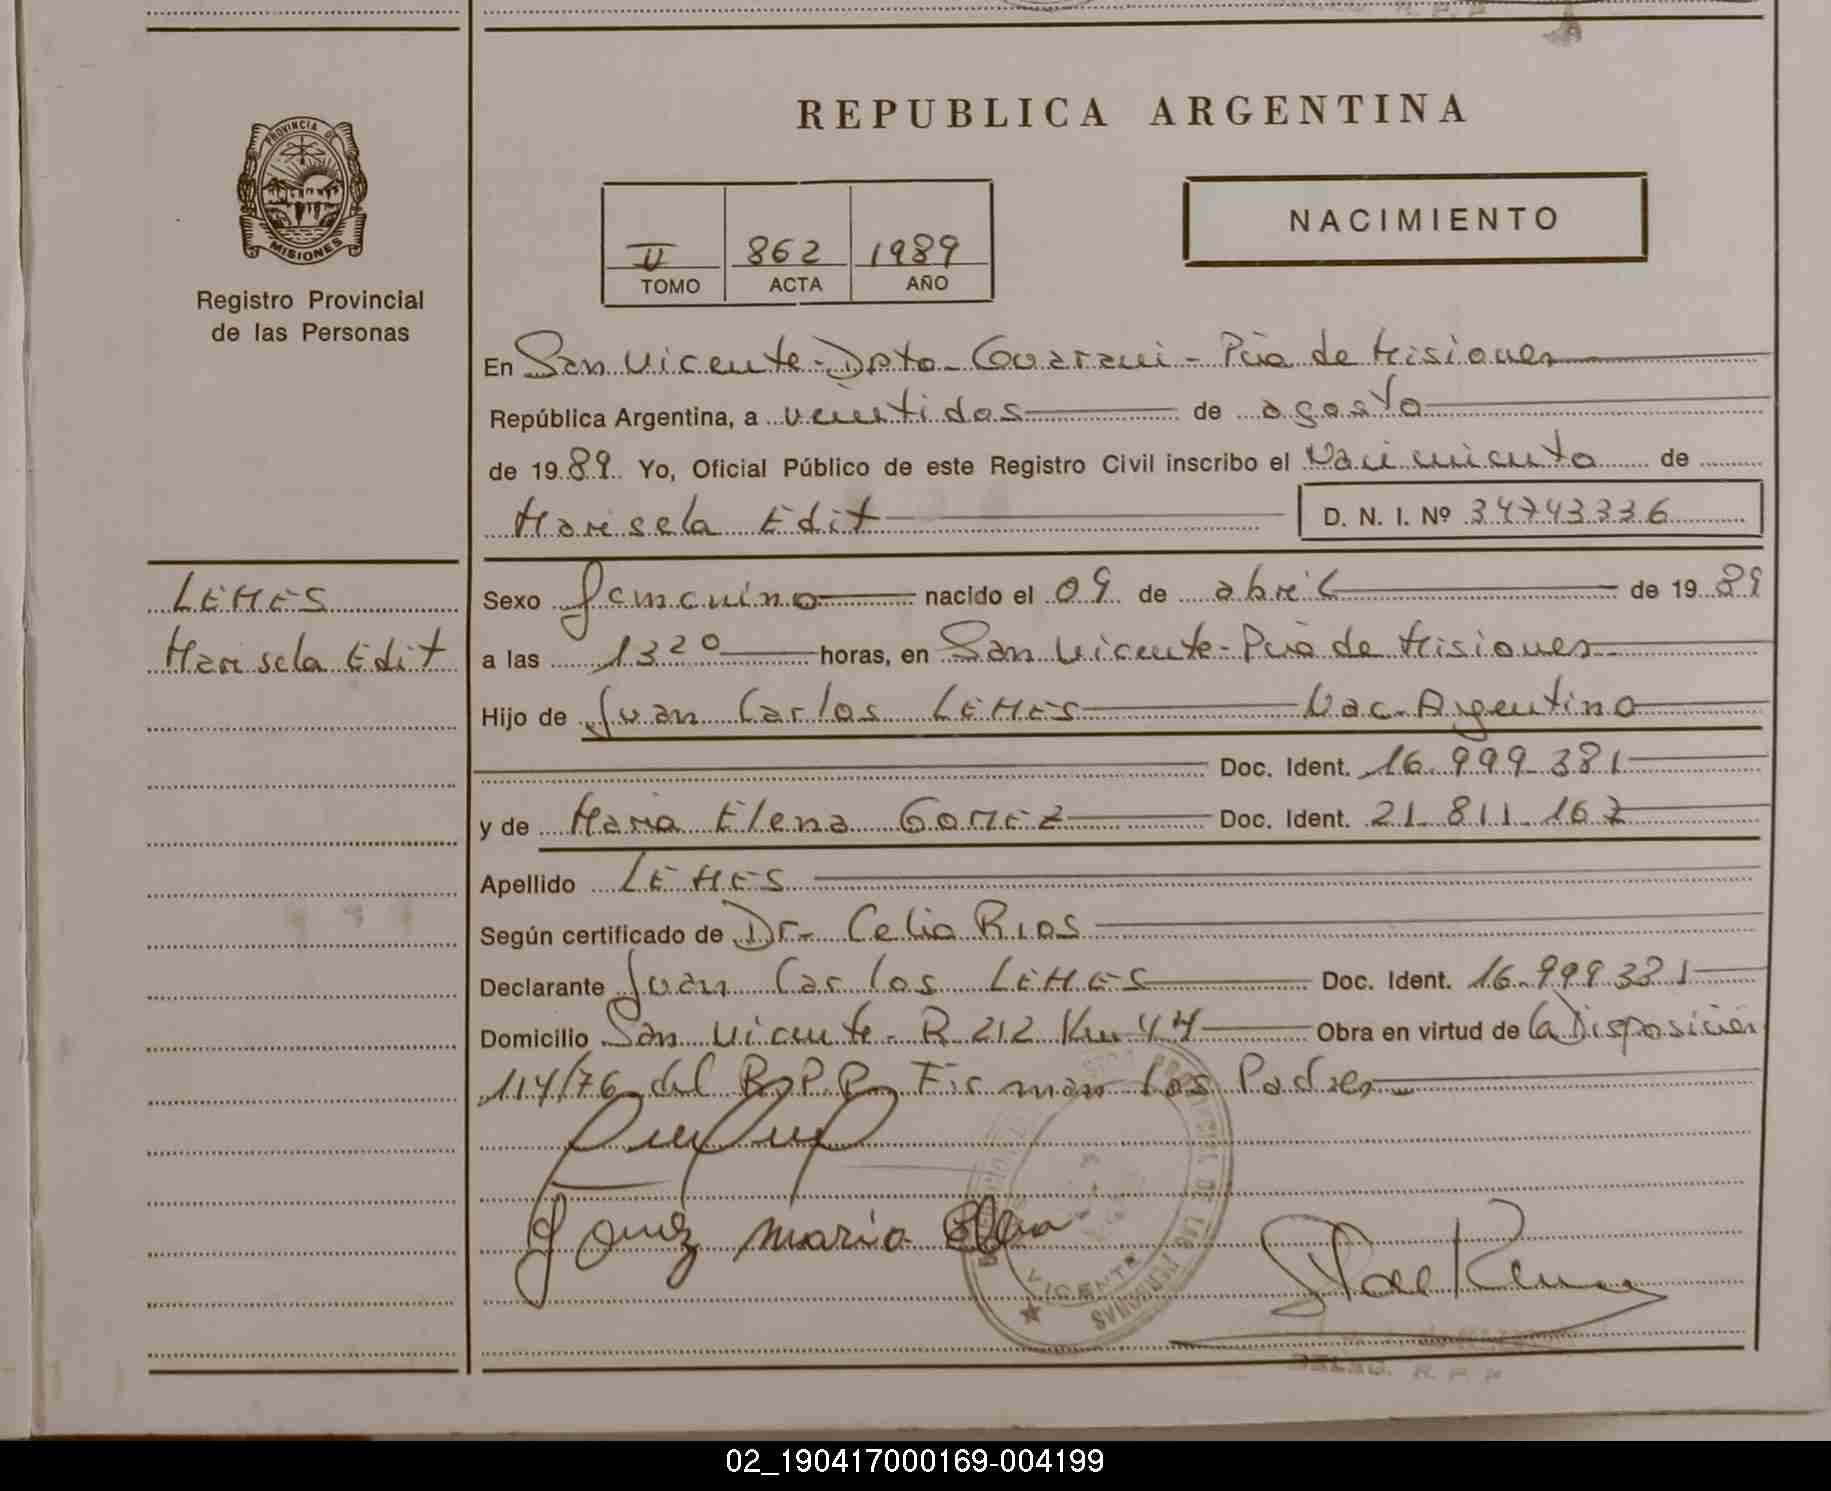 REPUBLICA ARGENTINA
PROVINCIA DE
MISIONES
Registro Provincial
de las Personas
NACIMIENTO
II 862 1989
TOMO ACTA AÑO
En San Vicente - Dpto. Guarani - Pcia de Misiones
República Argentina, a veintidos de agosto
de 1989. Yo, Oficial Público de este Registro Civil inscribo el Nacimiento de
Marisela Edit D. N. I. Nº 34743336
LEMES
Marisela Edit
Sexo femenino nacido el 09 de abril de 1989
a las 13 20 horas, en San Vicente - Pcia de Misiones
Hijo de Juan Carlos LEMES Nac. Argentina
Doc. Ident. 16.999.381
y de Maria Elena GOMEZ Doc. Ident. 21.811.167
Apellido LEMES
Según certificado de Dr. Celia RIOS
Declarante Juan Carlos LEMES Doc. Ident. 16.999.381
Domicilio San Vicente - R 212 Km 44 Obra en virtud de la Disposición
114/76 del R.P.P. Firman los Padres
Gomez Maria Elena
VICENTE
DE LAS PERSONAS
DELEG. R. P. P
02_190417000169-004199